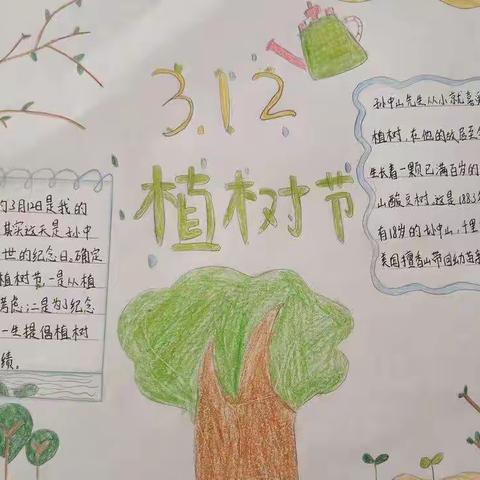 3.12
植树节
的3月12日是我的
其实这天是孙中
世的纪念日。确定
植树节,一是从植
考虑;二是为了纪念
一生提倡植树
绩。
孙中山先生从小就喜
植树,在他的故居至
生长着一颗已满百岁的
山酸豆树,这是1883
有18岁的孙中山,千里
美国檀香山带回幼苗